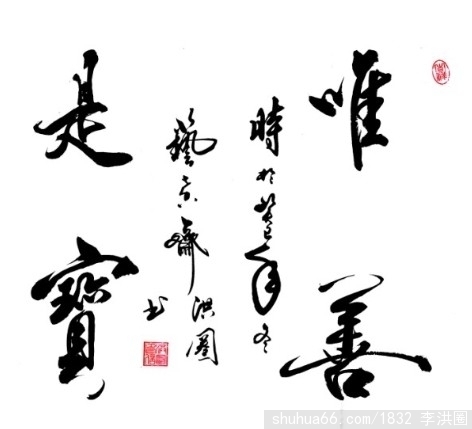 唯善
時於癸巳年冬
藝齋洪圖书
是寶
shuhua66.com/1832 李洪圖